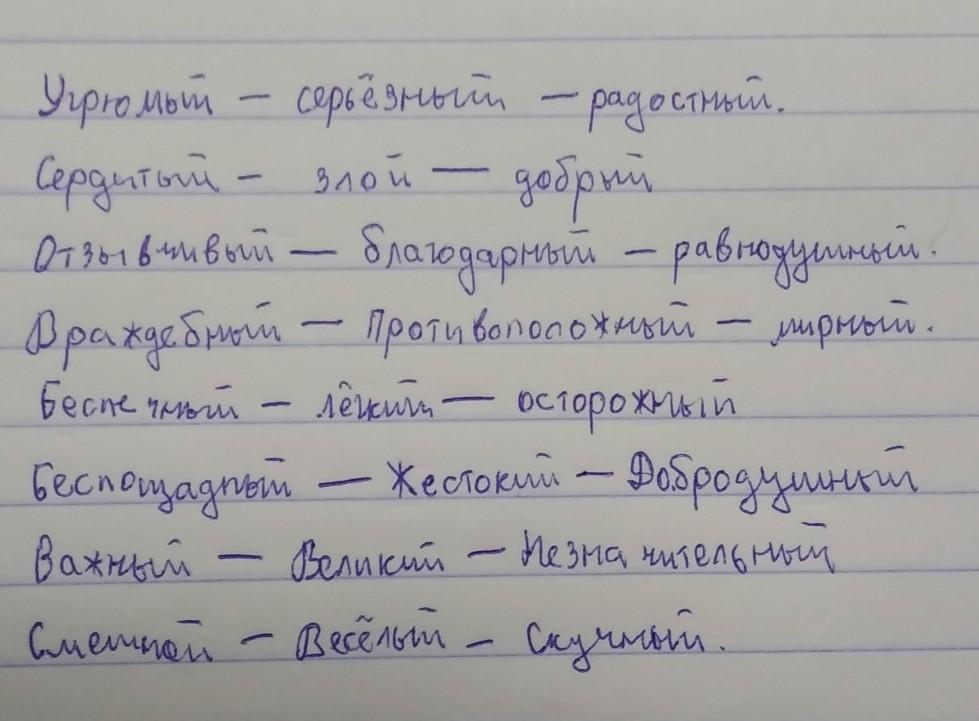 Угрюмый – серьёзный – радостный.
Сердитый – злой – добрый
Отзывчивый – благодарный – равнодушный.
Враждебный – Противоположный – мирный.
Беспечный – лёгкий – осторожный
Беспощадный – Жестокий – Добродушный
Важный – Великий – Незначительный
Смешной – Весёлый – Скучный.